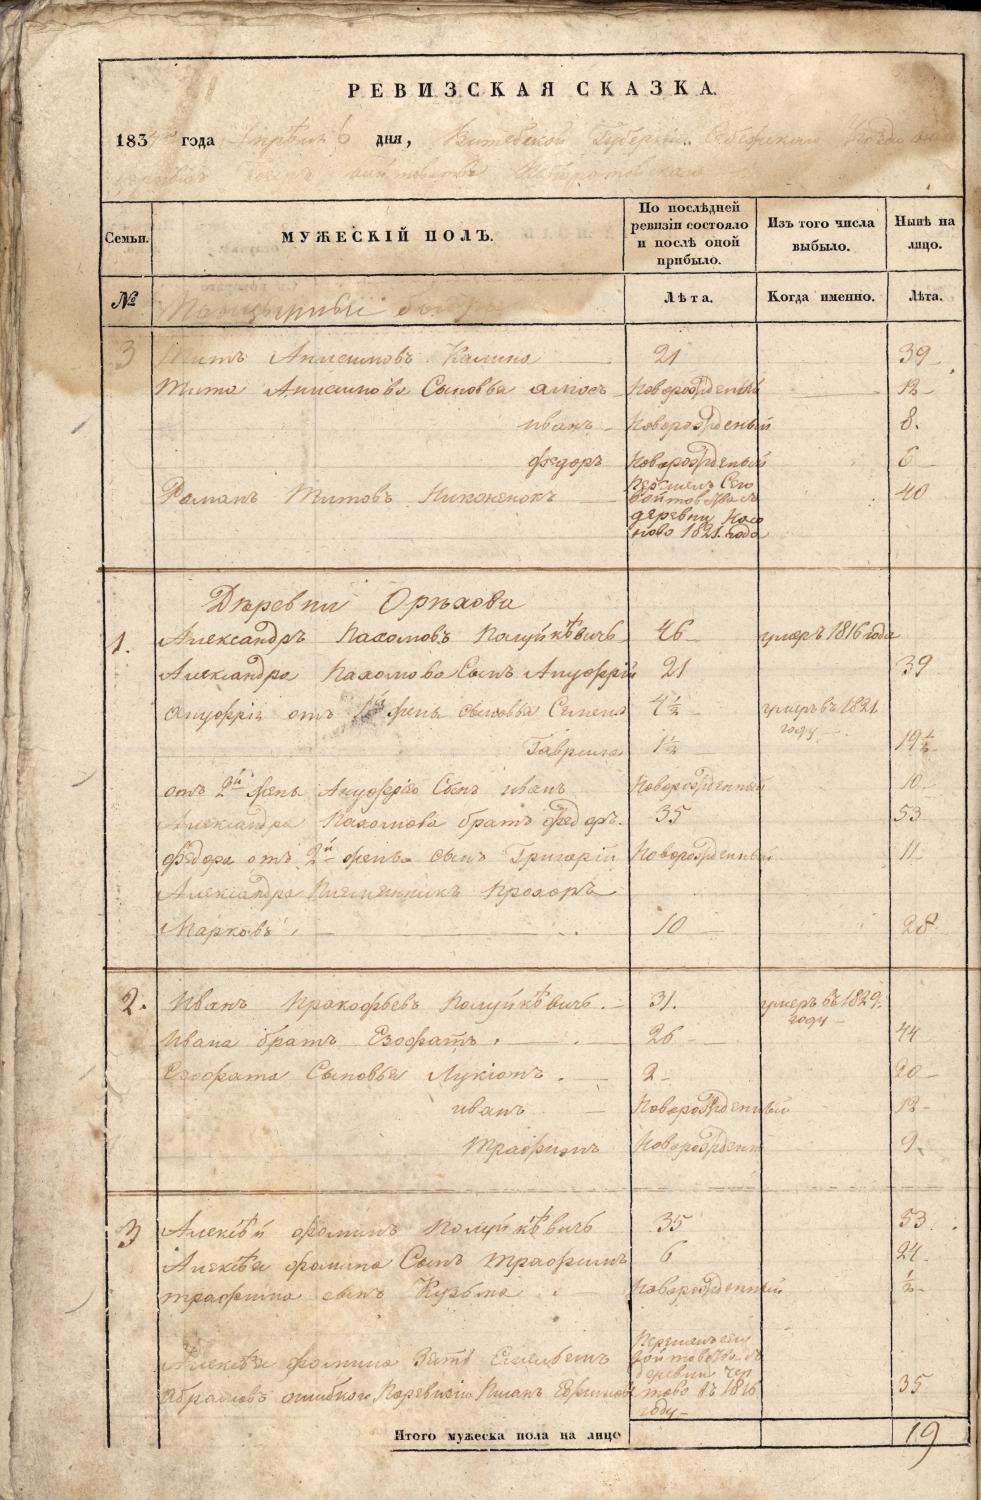 РЕВИЗСКАЯ СКАЗКА.
183 года Апрѣля 6 дня, Витебской Губернiи
Семьи.
МУЖЕСКIЙ ПОЛЪ.
По послѣдней ревизiи состояло и послѣ оной прибыло.
Изъ того числа выбыло.
Нынѣ на лицо.
№
Лѣта.
Когда именно.
Лѣта.
3 Титъ Анисимовъ Калина 21 39
Тита Анисимова Сыновья амосъ Новорожденный 12
иванъ Новорожденый 8.
федоръ Новорожденый 6
Романъ Титовъ 40
деревни
1821 года
Деревни Орѣхова
1. Александръ Пахомовъ Полуйкѣвичь 46 умеръ 1816 года
Александра Пахомова Сынъ Ануфрiй 21 39
Ануфрiя отъ 1й жены сыновья Семенъ 4½ умеръ въ 1821 году
Гаврила 1½ 19½
отъ 2й жены Ануфрiя Сынъ иванъ Новорожденный 10
Александра Пахомова братъ федоръ. 35 53
федора отъ 2й жены сынъ Григорiй Новорожденный 11
Александра Племянникъ Прохоръ
Марковъ 10 28
2. Иванъ Прокофьевъ Полуйкѣвичь. 31. умеръ въ 1829. году
Ивана братъ Езофатъ 26 44
Езофата Сыновья Лукiянъ 2 20
иванъ Новорожденный 12
Трафимъ Новорожденый 9
3 Алексѣй фоминъ Полуйкѣвичь 35 53.
Алексѣя фомина Сынъ Трафимъ 6 24
трафима сынъ Кузьма Новорожденный ½
Алексѣя фомина Зять
деревни
въ 1816
году
35
Итого мужеска пола на лицо 19